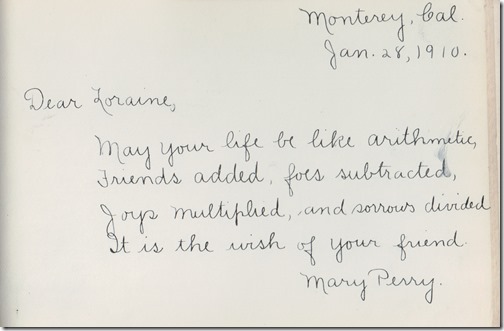 Monterey, Cal.
Jan. 28, 1910.
Dear Loraine,
May your life be like arithmetic,
Friends added, foes subtracted,
Joys multiplied, and sorrows divided
It is the wish of your friend.
Mary Perry.